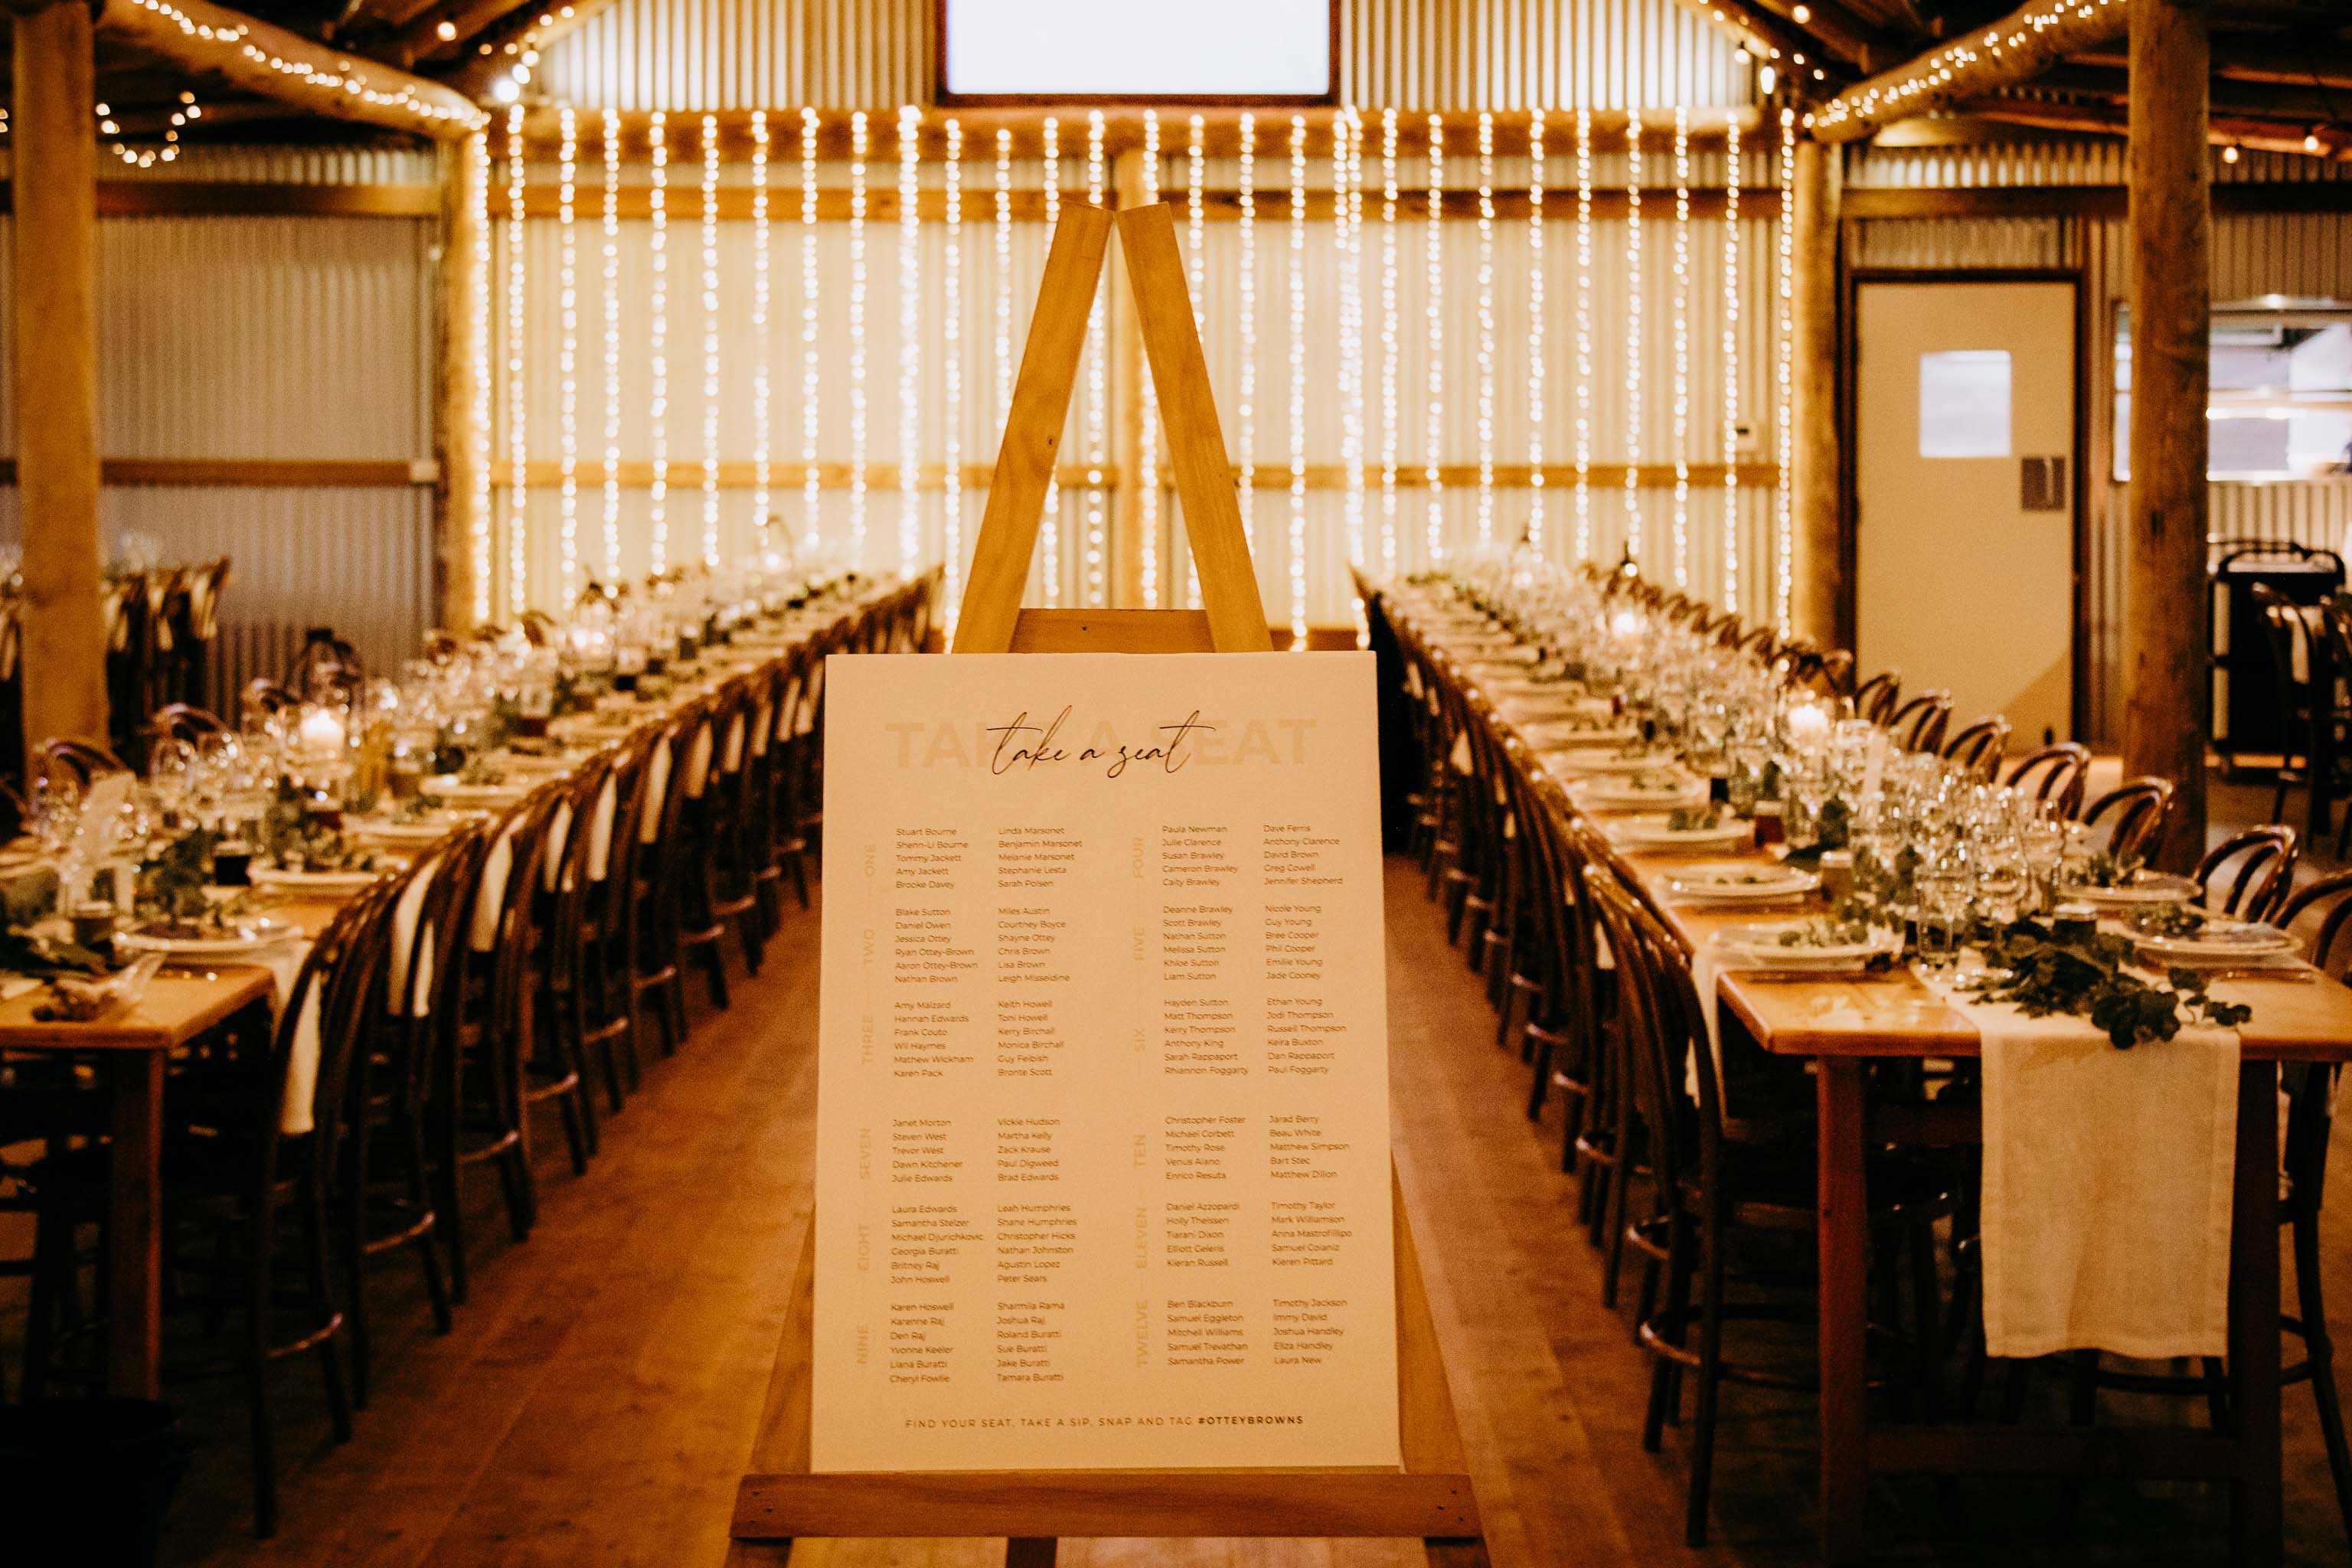 TAKE A SEAT
take a seat
ONE
Stuart Bourne Linda Marsonet
Shenn-Li Bourne Benjamin Marsonet
Tommy Jackett Melanie Marsonet
Amy Jackett Stephanie Lesta
Brooke Davey Sarah Polsen
TWO
Blake Sutton Miles Austin
Daniel Owen Courtney Boyce
Jessica Ottey Shayne Ottey
Ryan Ottey-Brown Chris Brown
Aaron Ottey-Brown Lisa Brown
Nathan Brown Leigh Misseldine
THREE
Amy Malzard Keith Howell
Hannah Edwards Toni Howell
Frank Couto Kerry Birchall
Wil Haymes Monica Birchall
Mathew Wickham Guy Feibish
Karen Pack Bronte Scott
FOUR
Paula Newman Dave Ferris
Julie Clarence Anthony Clarence
Susan Brawley David Brown
Cameron Brawley Greg Cowell
Caity Brawley Jennifer Shepherd
FIVE
Deanne Brawley Nicole Young
Scott Brawley Guy Young
Nathan Sutton Bree Cooper
Melissa Sutton Phil Cooper
Khloe Sutton Emilie Young
Liam Sutton Jade Cooney
SIX
Hayden Sutton Ethan Young
Matt Thompson Jodi Thompson
Kerry Thompson Russell Thompson
Anthony King Keira Buxton
Sarah Rappaport Dan Rappaport
Rhiannon Foggarty Paul Foggarty
SEVEN
Janet Morton Vickie Hudson
Steven West Martha Kelly
Trevor West Zack Krause
Dawn Kitchener Paul Digweed
Julie Edwards Brad Edwards
EIGHT
Laura Edwards Leah Humphries
Samantha Stelzer Shane Humphries
Michael Djurichkovic Christopher Hicks
Georgia Buratti Nathan Johnston
Britney Raj Agustin Lopez
John Hoswell Peter Sears
NINE
Karen Hoswell Sharmila Rama
Karenne Raj Joshua Raj
Den Raj Roland Buratti
Yvonne Keeler Sue Buratti
Liana Buratti Jake Buratti
Cheryl Fowlie Tamara Buratti
TEN
Christopher Foster Jarad Berry
Michael Corbett Beau White
Timothy Rose Matthew Simpson
Venus Alano Bart Stec
Enrico Resuta Matthew Dillon
ELEVEN
Daniel Azzopardi Timothy Taylor
Holly Theissen Mark Williamson
Tiarani Dixon Anna Mastrofilipo
Elliott Geleris Samuel Colaniz
Kieran Russell Kieren Pittard
TWELVE
Ben Blackburn Timothy Jackson
Samuel Eggleton Immy David
Mitchell Williams Joshua Handley
Samuel Trevathan Eliza Handley
Samantha Power Laura New
FIND YOUR SEAT, TAKE A SIP, SNAP AND TAG #OTTEYBROWNS